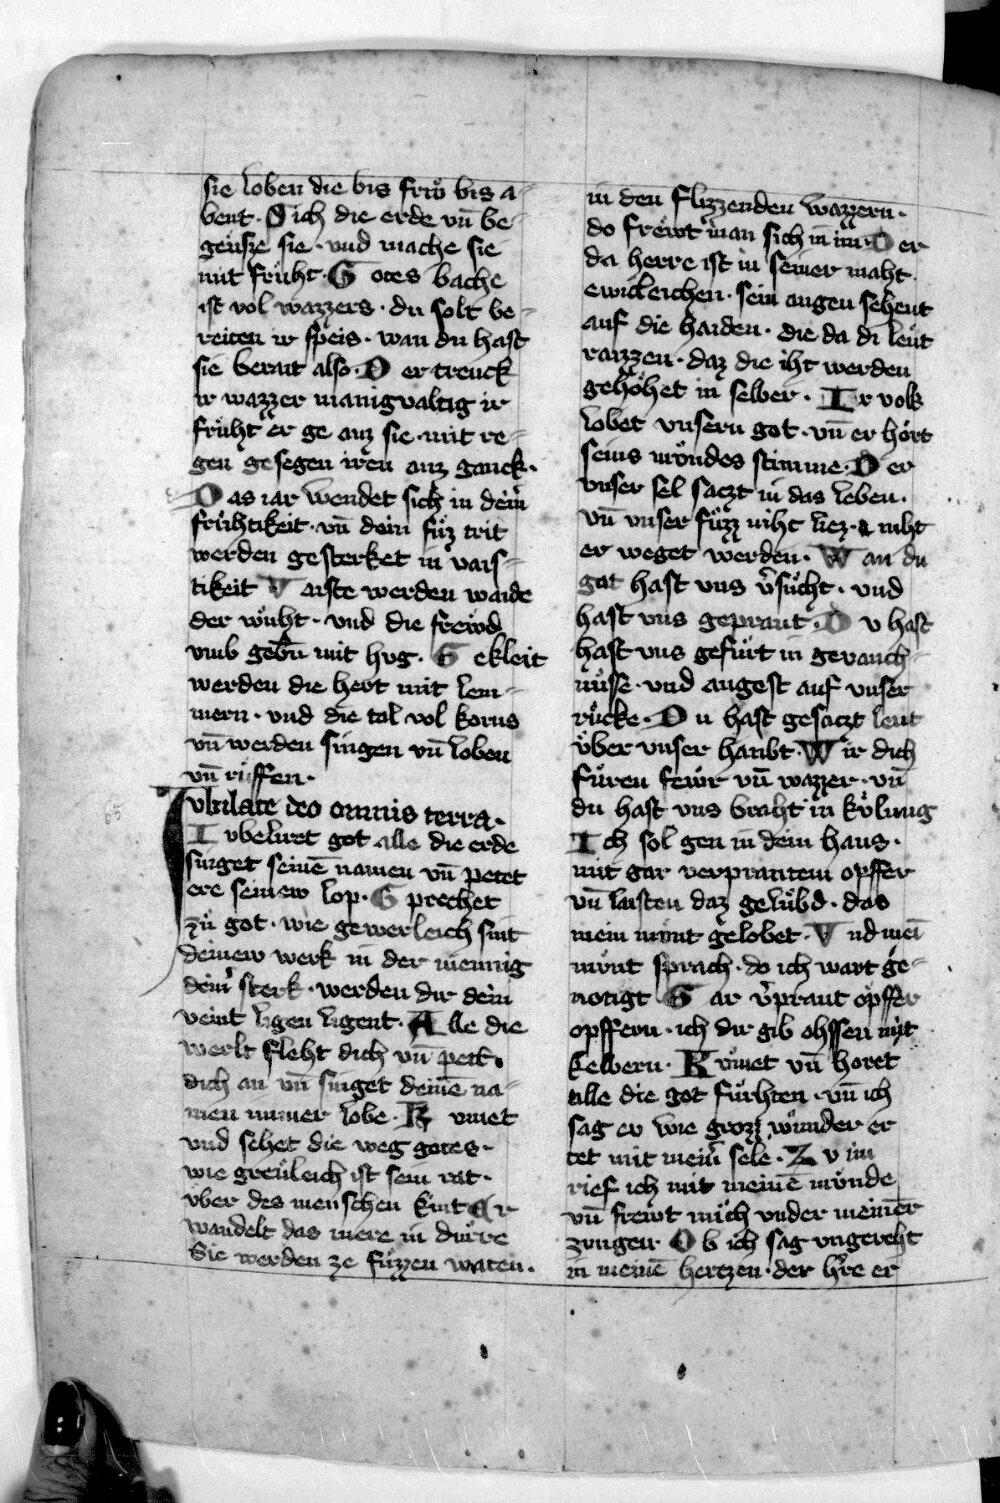 sie loben die bis frů bis a-
bent. Sich die erde vn̄ be-
geuͤsze sie. vnd mache sie
mit fruͤht. Gotes bache
ist vol wazzers. du solt be-
reiten ir speis. wan du hast
sie berait also. Der trenck
ir wazzer manigualtig ir
fruͤht er ge anz sie. mit re-
gen gesegen iren anz ganck.
Das iar wendet sich in dein
fruͤhtikeit. vn̄ dein fuͤz trit
werden gesterket in vais-
tikeit Vaiste werden waide
der wuͤht. vnd die frewd
vmb gebn̄ mit hvg. Gekleit
werden die hert mit lem-
mern. vnd die tal vol korns
vn̄ werden singen vn̄ loben
vn̄ ruͤffen.
Jubilate deo omnis terra.
Iubeliret got alle die erde
singet seinē namen vn̄ petet
ere seinew lop. Sprechet
zuͤ got. wie gewerleich sint
deinew werk in der mennig
deinr̄ sterk. werden dir dein
veint ligen ligent. Alle die
werlt fleht dich vn̄ pett.
dich an vn̄ singet deinē na-
men immer lobe. Kumet
vnd sehet die weg gotes.
wie greuͤleich ist sein rat.
vber des menschen kint Er
wandelt das mere in duͤrre
Sie werden ze fuͤzzen waten.
in den flizzenden wazzern.
do frewt man sich in im. Der
da herre ist in seiner maht.
ewicleichen. sein augen sehent
auf die haiden. die da di leut
raizzen. daz die iht werden
gehoͤhet in selber. Ir volk
lobet vnsern got. vn̄ er hoͤrt
seins moͤndes stimme. Der
vnser sel saczt in das leben.
vn̄ vnser fuͤzz niht liez. niht
er weget werden. Wan du
got hast vns v̄suͤcht. vnd
hast vns geprant. Du hast
hast vns gefuͤrt in gevanch-
nuͤsse. vnd angest auf vnser
ruͤcke. Du hast gesaczt leut
vͤber vnser haubt. Wir dich
fuͤren fewr vn̄ wazzer. vn̄
du hast vns braht in kuͤlung
Ich sol gen in dein haus.
mit gar verprantem opffer
vn̄ laisten daz geluͤbd. das
mein mont gelobet. Vnd mei
moͤnt sprach. do ich wart ge-
notigt Gar v̄prant opffer
opffern. ich dir gib ohssen mit
kelbern. Kuͤmet vn̄ horet
alle die got fuͤrhten. vn̄ ich
sag ev wie grozz wuͤnder er
tet mit meinr̄ sele. Zv im
rief ich mit meinē moͤnde
vn̄ frewt mich vnder meiner
zungen Ob ich sag vngereht
in meinē hertzen. der hr̄e er